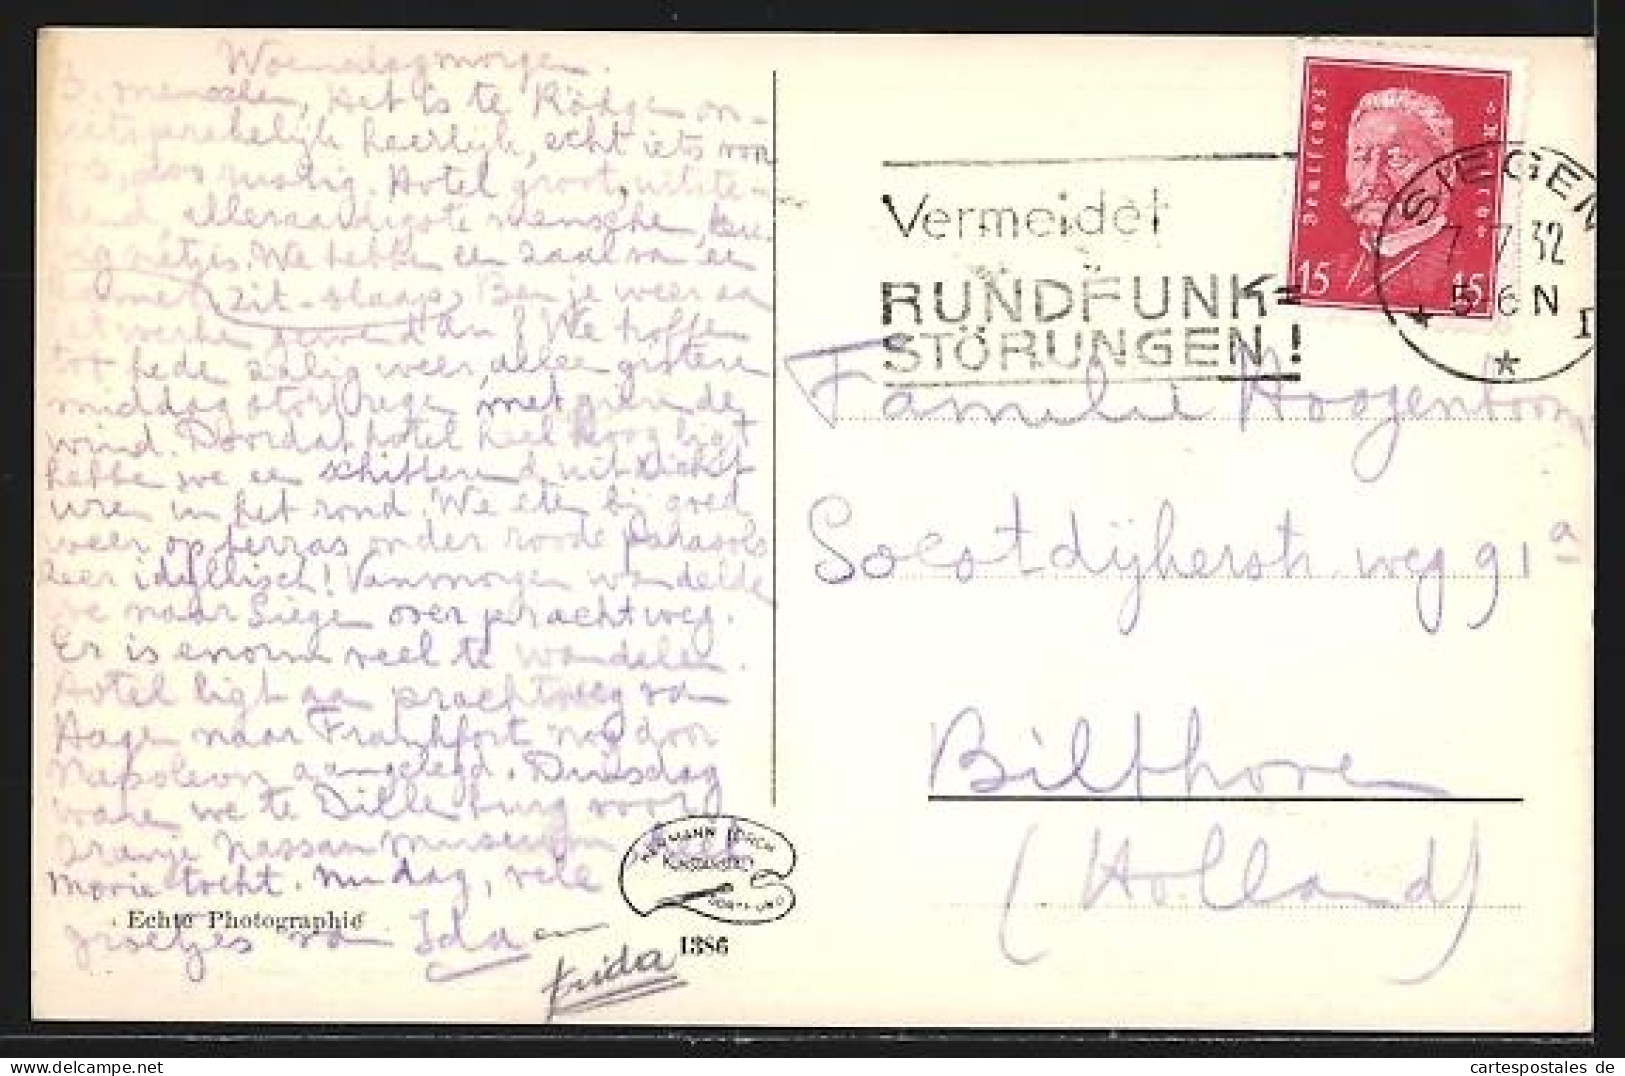 Woensdagmorgen.
B. mensche, Het is te Rödge on-
uitsprekelijk heerlijk, echt iets voor
os, dos rustig. Hotel groot, uitste-
kend, alleraardigste mensche, keu-
rig netjes. We hebbe een zaal va een
kamer zit-slaap. Ben je weer aa
het werke gewend an? We hoffe
tot hede zalig weer, allee gistere
middag stortrege met gierende
wind. Doordat hotel heel hoog ligt
hebbe we ee schitterend uitzicht
ure in het rond. We ete bij goed
weer op terras onder roode parasols
zeer idyllisch! Vanmorgen wandelde
we naar Siege over prachtweg.
Er is enorm veel te wandele.
Hotel ligt aa prachtweg va
Hage naar Frankfort nog door
Napoleon aangelegd. Dinsdag
ware we te Dillenburg voor
Oranje Nassau museum
morie tocht. Nu dag, vele
groetjes va Ida en
Frida
Echte Photographie
HERMANN LORCH
KUNSTANSTALT
DORTMUND
1386
Vermeidet
RUNDFUNK=
STÖRUNGEN!
Deutsches
Reich
15 15
SIEGEN
7.7.32
5-6 N
1
Familie Hoogenboom
Soestdijkerstr. weg 91a
Bilthove
(Holland)
www.cartespostales.de
cartespostales de